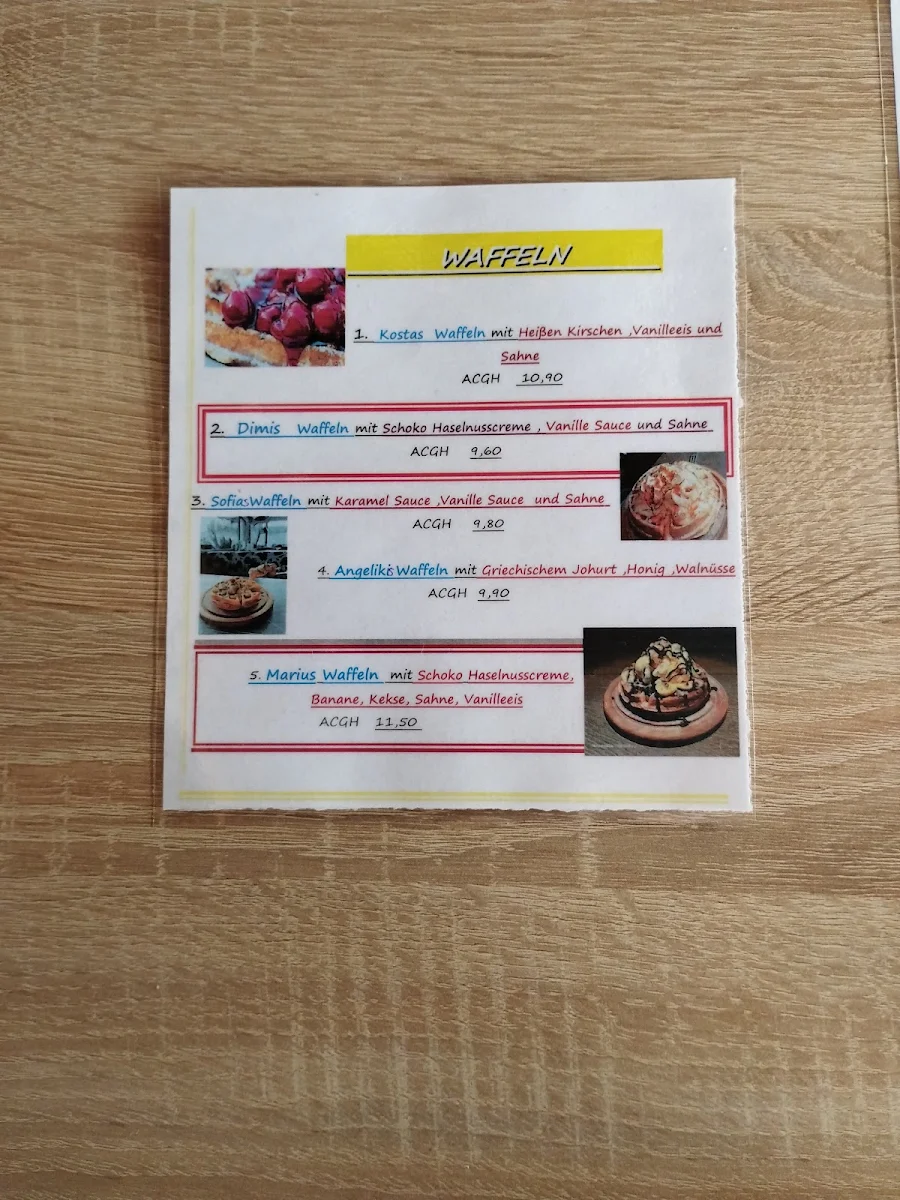 WAFFELN
1. Kostas Waffeln mit Heißen Kirschen ,Vanilleeis und
Sahne
ACGH 10,90
2. Dimis Waffeln mit Schoko Haselnusscreme , Vanille Sauce und Sahne
ACGH 9,60
3. Sofias Waffeln mit Karamel Sauce ,Vanille Sauce und Sahne
ACGH 9,80
4. Angelikis Waffeln mit Griechischem Johurt ,Honig ,Walnüsse
ACGH 9,90
5. Marius Waffeln mit Schoko Haselnusscreme,
Banane, Kekse, Sahne, Vanilleeis
ACGH 11,50